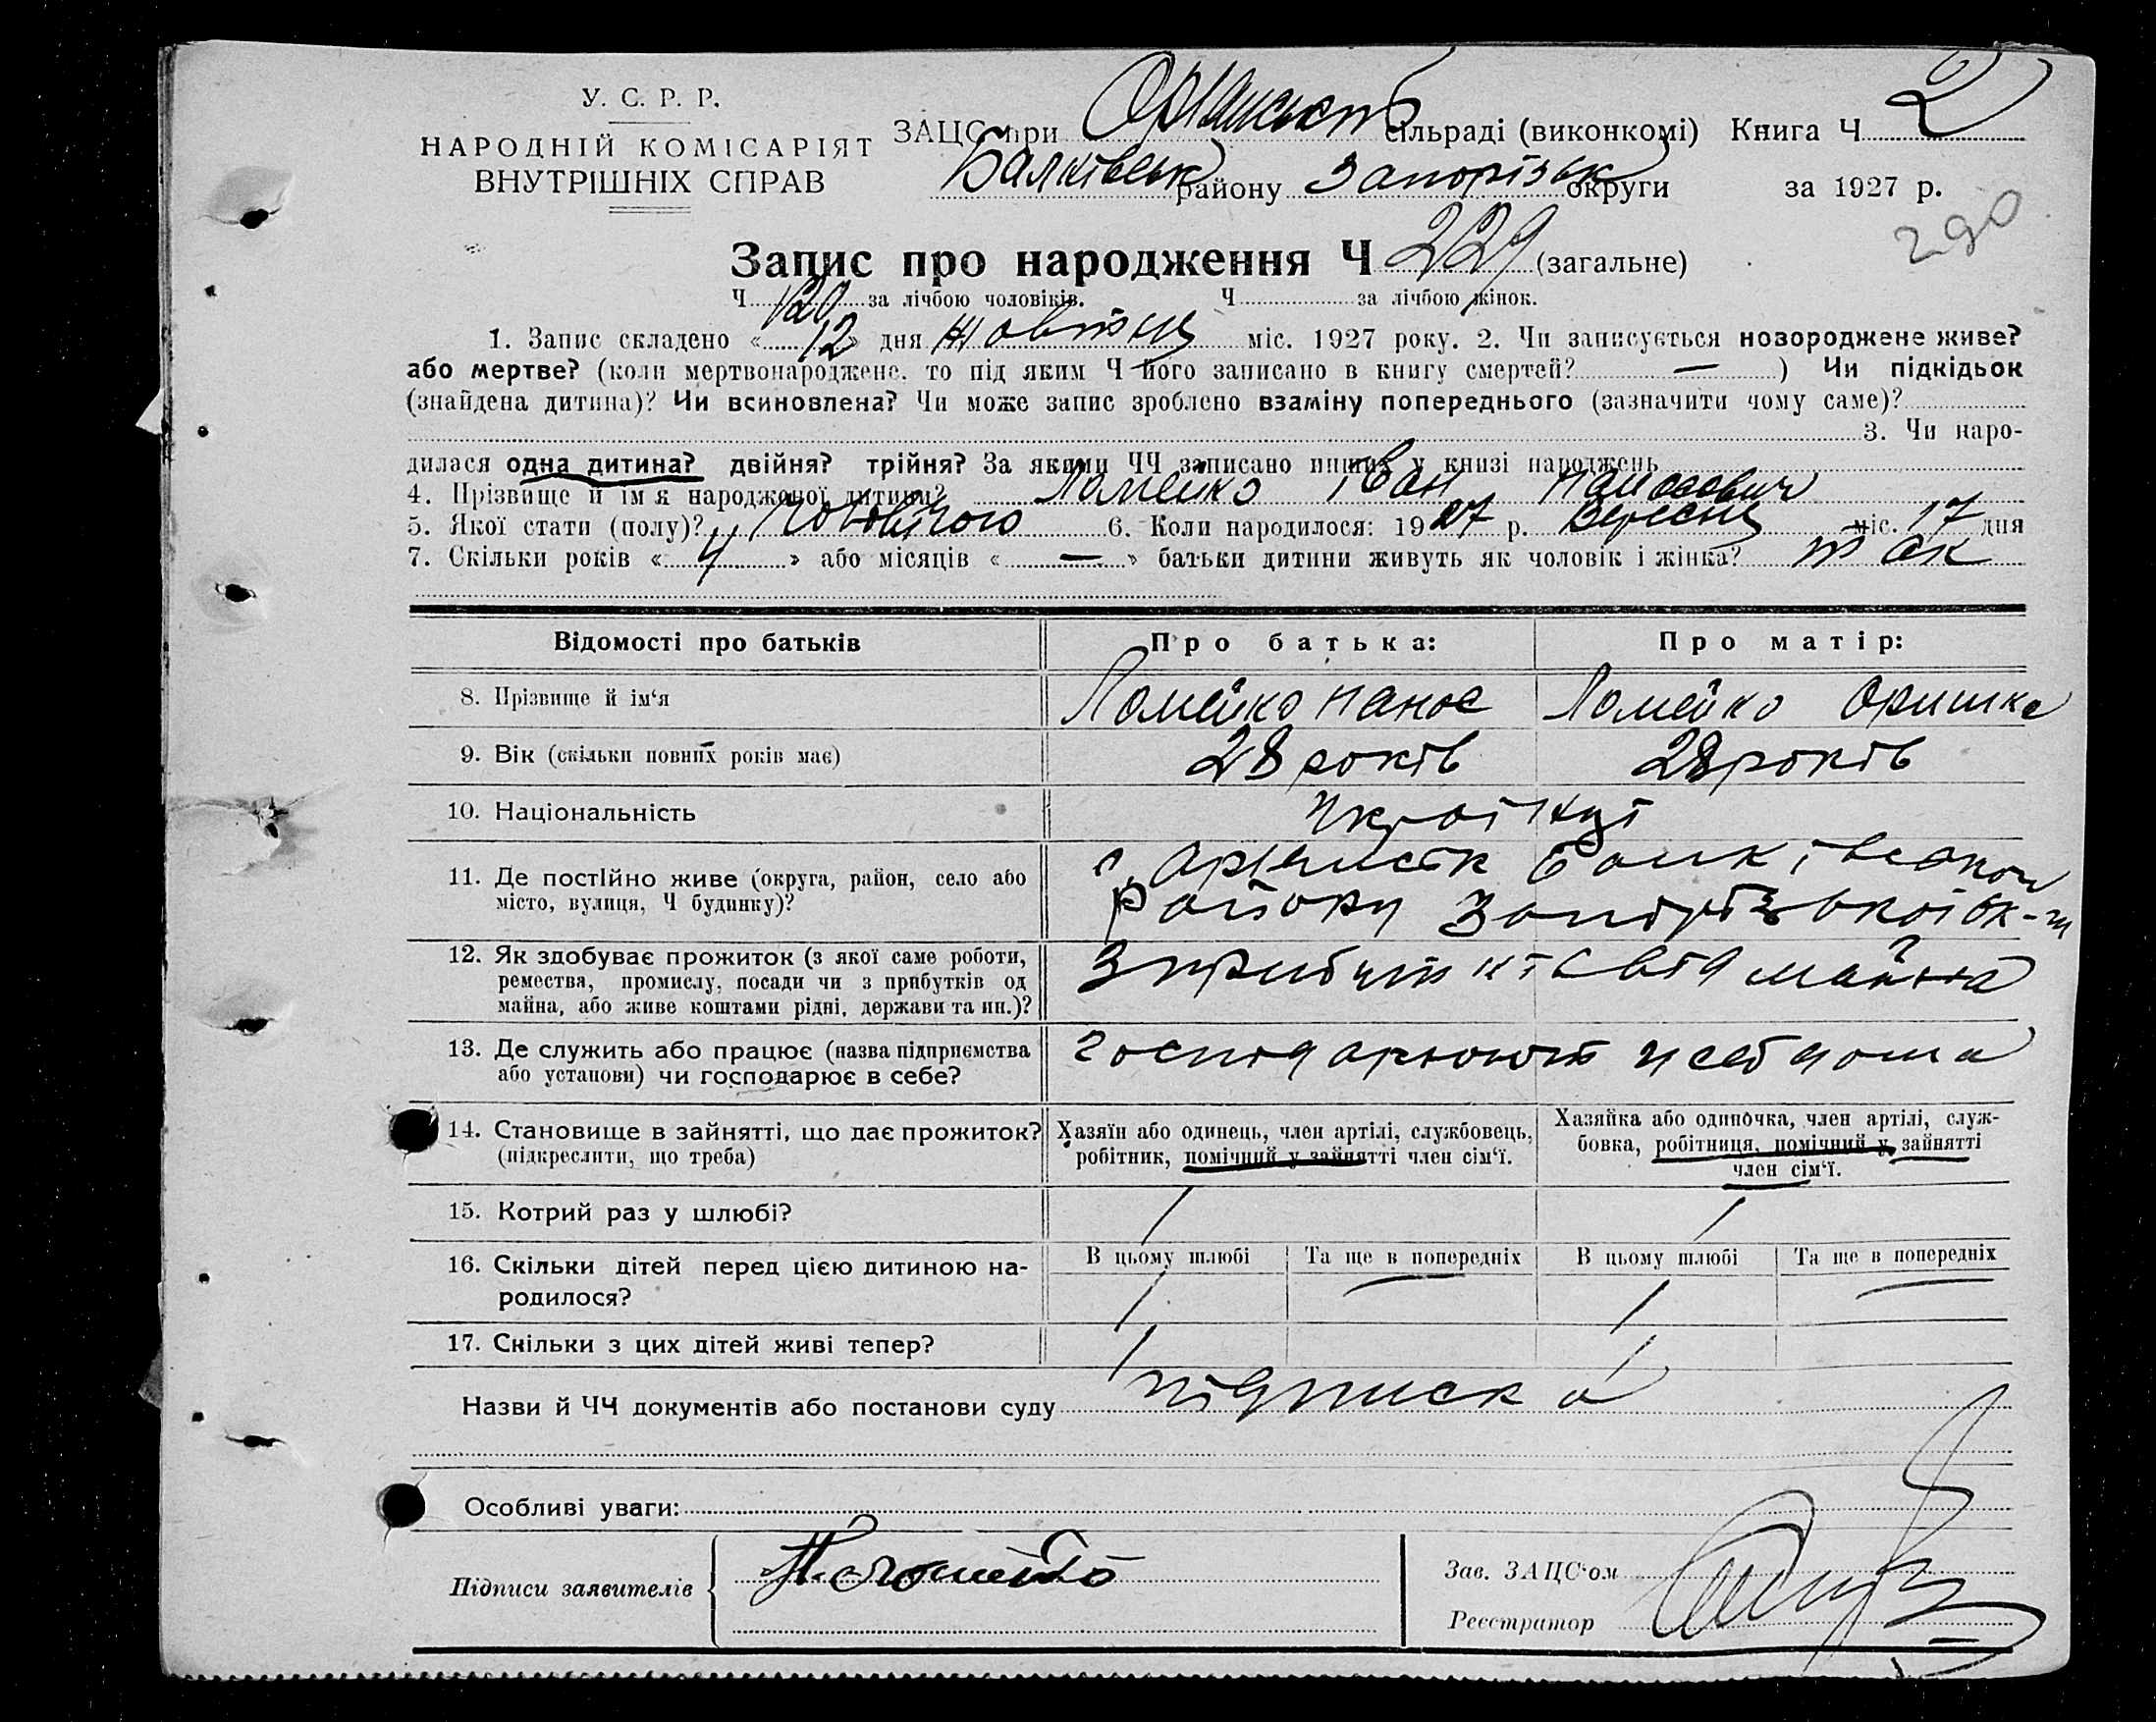 У. С. Р. Р.
НАРОДНІЙ КОМІСАРІЯТ
ВНУТРІШНІХ СПРАВ
ЗАЦС при сільраді (виконкомі) Книга Ч 2
Балківськ району Запорізьк округи за 1927 р.
290
Запис про народження Ч 229 (загальне)
Ч 120 за лічбою чоловіків. Ч за лічбою жінок.
1. Запис складено « 12 » дня жовтня міс. 1927 року. 2. Чи записується новороджене живе?
або мертве? (коли мертвонароджене, то під яким Ч його записано в книгу смертей? — ) Чи підкідьок
(знайдена дитина)? Чи всиновлена? Чи може запис зроблено взаміну попереднього (зазначити чому саме)?
3. Чи наро-
дилася одна дитина? двійня? трійня? За якими ЧЧ записано инших у книзі народжень
4. Прізвище й ім'я народженої дитини? Ломейко Іван Панасович
5. Якої стати (полу)? чоловічою 6. Коли народилося: 1927 р. вересня міс. 17 дня
7. Скільки років « 4 » або місяців « — » батьки дитини живуть як чоловік і жінка? так
Відомості про батьків Про батька: Про матір:
8. Прізвище й ім'я Ломейко Панас Ломейко Оришка
9. Вік (скільки повних років має) 28 років 28 років
10. Національність Українці
11. Де постійно живе (округа, район, село або
місто, вулиця, Ч будинку)?
с. Балківського
району Запорізької ок-ги
12. Як здобуває прожиток (з якої саме роботи,
ремества, промислу, посади чи з прибутків од
майна, або живе коштами рідні, держави та ин.)?
З прибутків від майна
13. Де служить або працює (назва підприємства
або установи) чи господарює в себе?
господарюють у себе дома
14. Становище в зайнятті, що дає прожиток?
(підкреслити, що треба)
Хазяїн або одинець, член артілі, службовець,
робітник, помічний у зайнятті член сім'ї.
Хазяйка або одиночка, член артілі, служ-
бовка, робітниця, помічний у зайнятті
член сім'ї.
15. Котрий раз у шлюбі? 1 1
16. Скільки дітей перед цією дитиною на-
родилося?
В цьому шлюбі Та ще в попередніх В цьому шлюбі Та ще в попередніх
1 — 1 —
17. Скільки з цих дітей живі тепер? 1 1
Назви й ЧЧ документів або постанови суду підписка
Особливі уваги:
Підписи заявителів П. Ломейко
Зав. ЗАЦС'ом
Реєстратор